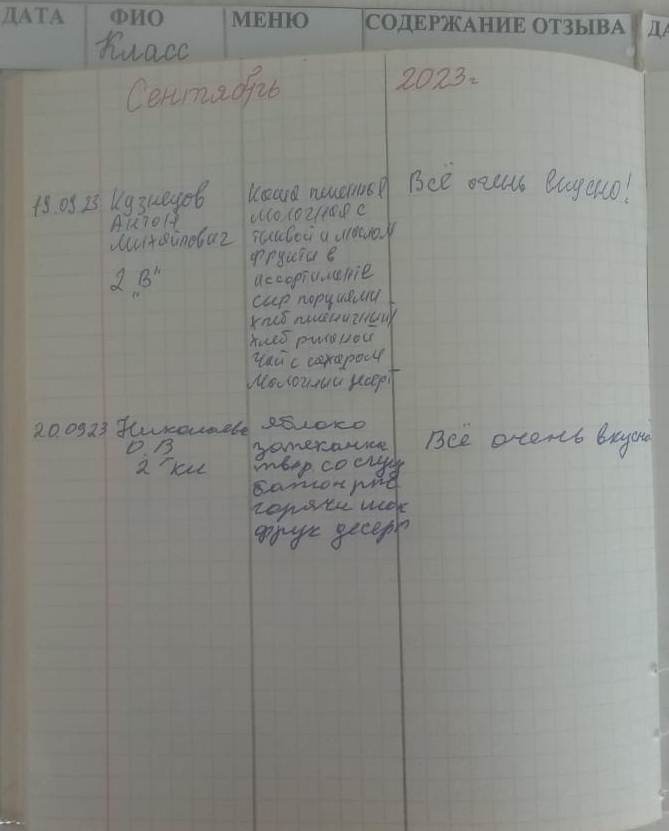 ДАТА ФИО МЕНЮ СОДЕРЖАНИЕ ОТЗЫВА ДА
Класс
Сентябрь 2023г
19.09.23 Кузнецов Каша пшенная Всё очень вкусно!
Антон молочная с
Михайлович тыквой и маслом
фрукты в
2 "В" ассортименте
сыр порциями
хлеб пшеничный
хлеб ржаной
Чай с сахаром
Молочный десерт
20.0923 Николаева яблоко Всё очень вкусно
О.В запеканка
2 "кл твор со сгущ
батон
горячи шок
фрук десерт